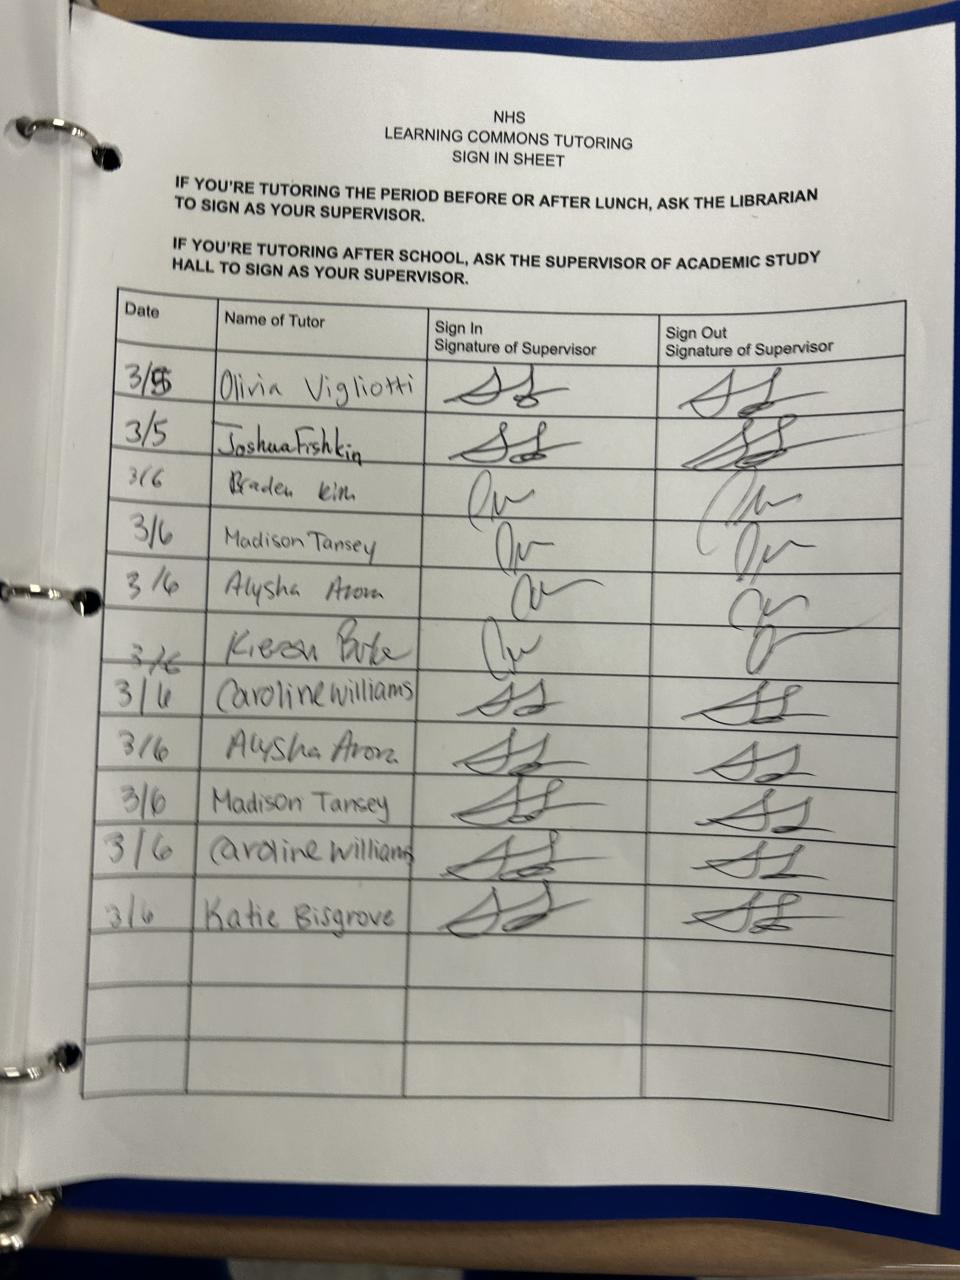 NHS
LEARNING COMMONS TUTORING
SIGN IN SHEET
IF YOU'RE TUTORING THE PERIOD BEFORE OR AFTER LUNCH, ASK THE LIBRARIAN
TO SIGN AS YOUR SUPERVISOR.
IF YOU'RE TUTORING AFTER SCHOOL, ASK THE SUPERVISOR OF ACADEMIC STUDY
HALL TO SIGN AS YOUR SUPERVISOR.
Date Name of Tutor Sign In Sign Out
Signature of Supervisor Signature of Supervisor
3/5 Olivia Vigliotti
3/5 Joshua Fishkin
3/6 Braden Kim
3/6 Madison Tansey
3/6 Alysha Arora
3/6
3/6 Caroline Williams
3/6 Alysha Arora
3/6 Madison Tansey
3/6 Caroline Williams
3/6 Katie Bisgrove